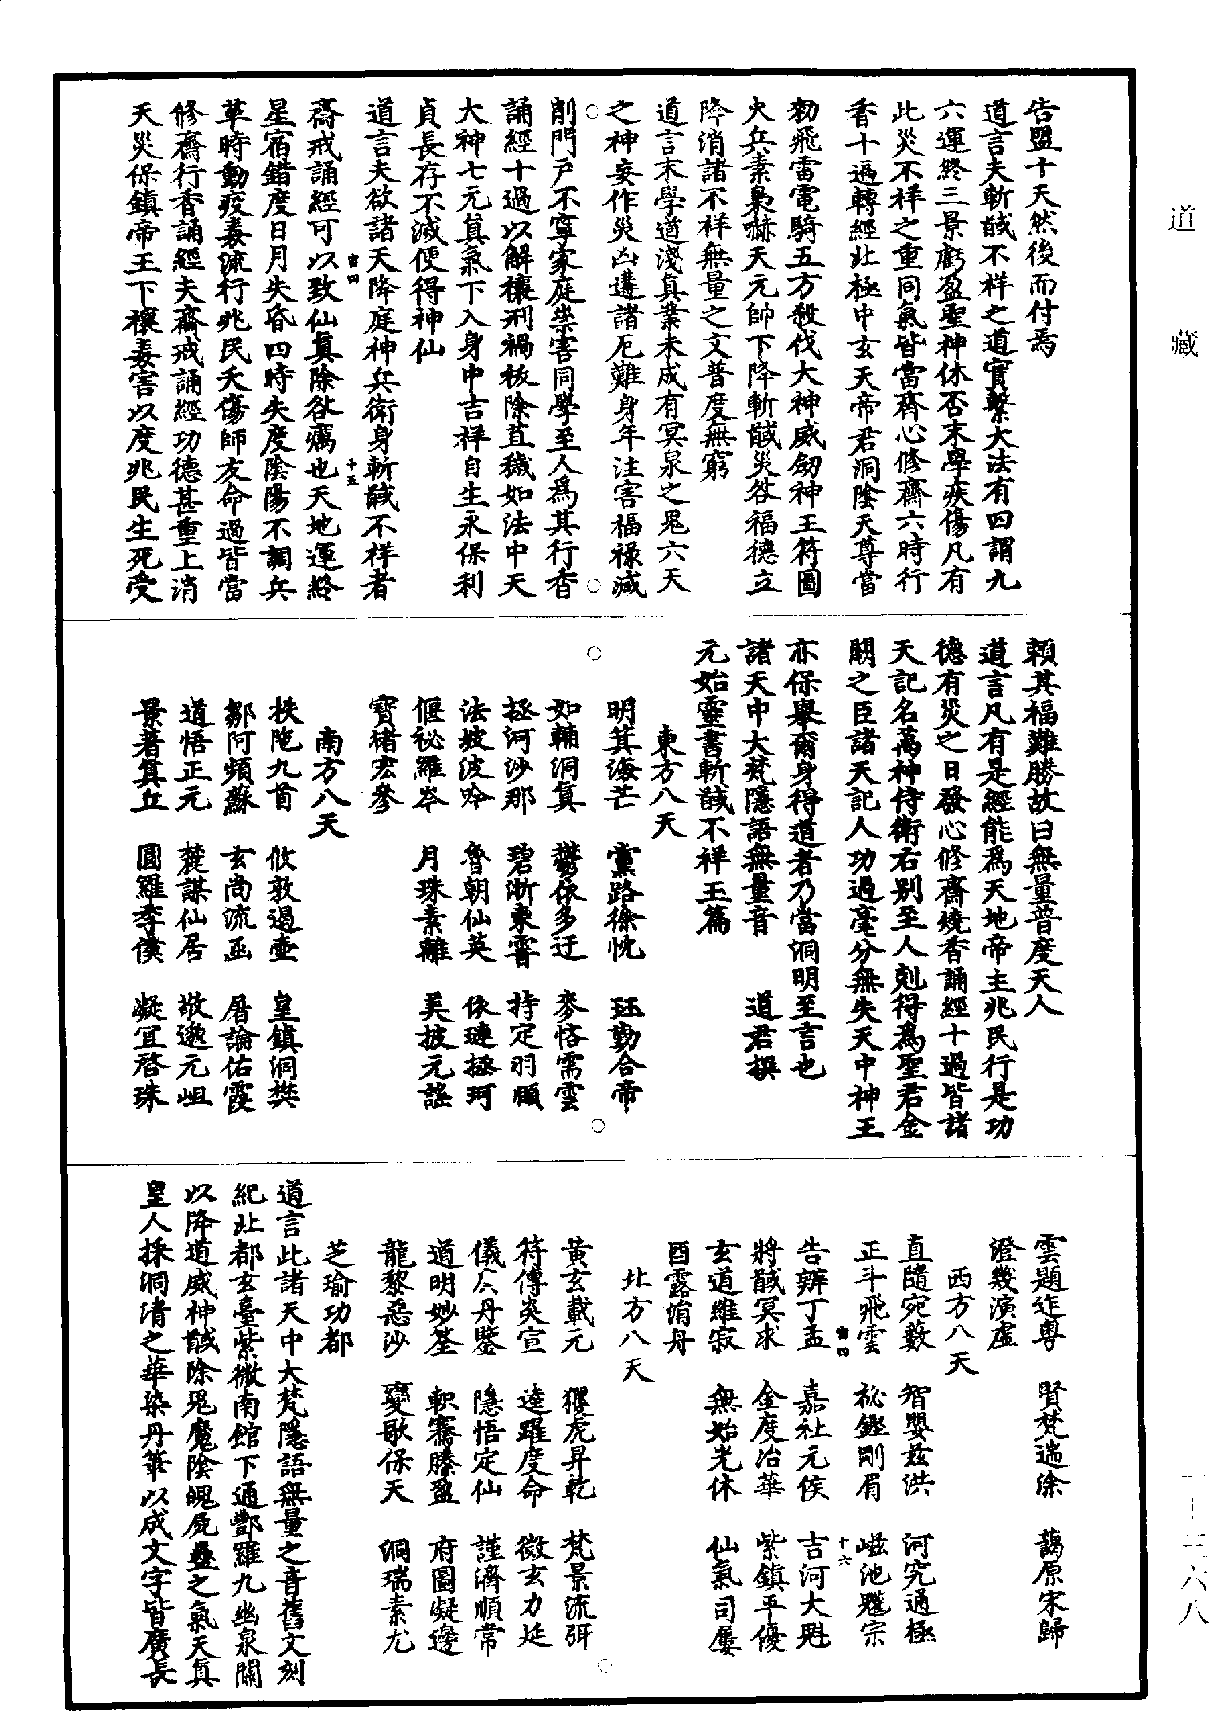 道藏
告盟十天然後而付焉
道言夫斬馘不祥之道實繫大法有四謂九
六運終三景虧盈聖神休否末學疾傷凡有
此災不祥之重同氣皆當齋心修齋六時行
香十過轉經北極中玄天帝君洞陰天尊當
勑飛雷電騎五方殺伐大神威劒神王符圖
火兵素梟赫天元帥下降斬馘災咎福德立
降消諸不祥無量之文普度無窮
道言末學道淺真業未成有冥泉之鬼六天
之神妄作災凶遘諸厄難身年注害福祿減
削門戶不寧家庭祟害同學至人爲其行香
誦經十過以解禳刑禍祓除苴穢如法中天
大神七元真氣下入身中吉祥自生永保利
貞長存不滅便得神仙
道言夫欲諸天降庭神兵衛身斬馘不祥者
齋戒誦經可以致仙真除欲癘也天地運終
星宿錯度日月失昏四時失度陰陽不調兵
革時動疫毒流行兆民夭傷師友命過皆當
修齋行香誦經夫齋戒誦經功德甚重上消
天災保鎮帝王下禳毒害以度兆民生死受
賴其福難勝故曰無量普度天人
道言凡有是經能爲天地帝主兆民行是功
德有災之日發心修齋燒香誦經十過皆諸
天記名萬神侍衛右別至人剋得爲聖君金
闕之臣諸天記人功過毫分無失天中神王
亦保舉爾身得道者乃當洞明至言也
諸天中大梵隱語無量音　道君撰
元始靈書斬馘不祥玉篇
東方八天
明箕海芒　黨路徐忱　珏勤合帝
如輔洞真　鬱依多迂　麥恪需雲
拯河沙那　碧浙東霄　持定羽順
法坡波吟　魯朝仙英　依璉拯珂
偃祕羅岑　月珠素離　美披元謠
寶褚宏參
南方八天
抶陁九首　攸敦過壺　皇鎮洞樊
鄒阿頻蘇　玄尚流函　屠論佑霞
道悟正元　麓謀仙居　敬邀元岨
景著真丘　圓羅李僕　凝宜啓珠
雲題迮尊　賢梵遄徐　藹原宋歸
澄幾演虛
西方八天
直隨宛藪　智嬰茲洪　河究通極
正斗飛雲　祕鏗剛眉　嵫池躔宗
告辨丁孟　嘉社元侯　吉河大魁
將馘冥求　金度冶華　紫鎮平優
玄道維寂　無始光休　仙氣司屢
酉露消丹
北方八天
黄玄載元　玃虎昇乾　梵景流弭
符傳炎宣　達躍度命　微玄力延
儀尽丹鑒　隱悟定仙　謹濟順常
道明妙荃　軹騫縢盈　府圖凝邊
龍黎惡沙　變歌保天　洞瑞素尤
芝瑜功都
道言此諸天中大梵隱語無量之音舊文刻
紀北都玄臺紫微南館下通酆羅九幽泉關
以降道威神馘除鬼魔陰魄屍疊之氣天真
皇人採洞清之華染丹筆以成文字皆廣長